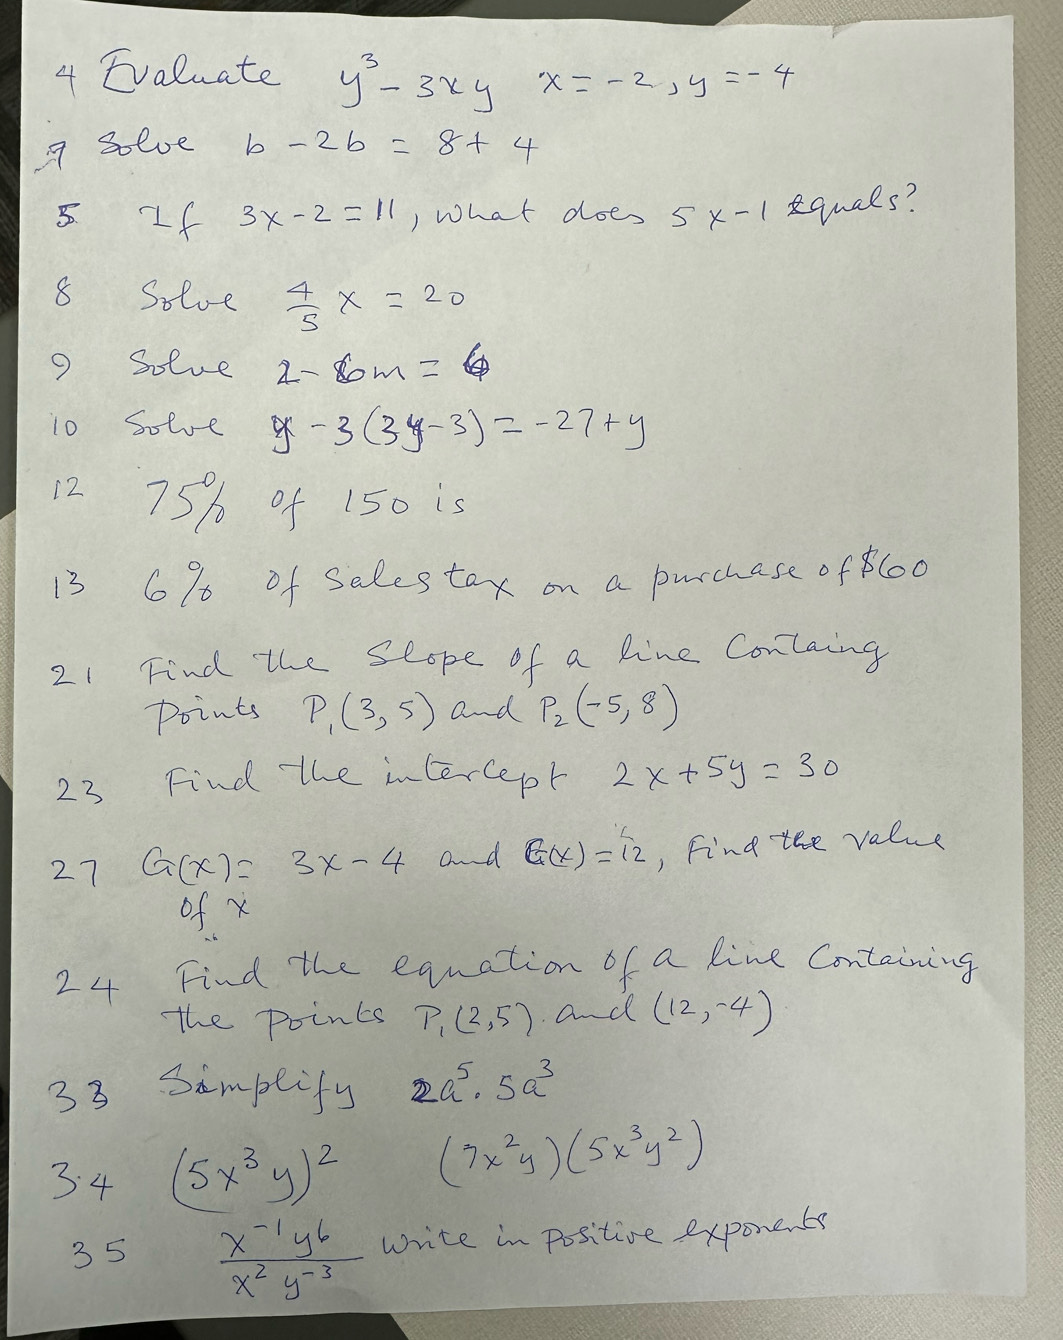 4 Evaluate y³ - 3xy x = -2, y = -4
7 Solve b - 2b = 8 + 4
5 If 3x - 2 = 11, what does 5x - 1 equals?
8 Solve 4/5 x = 20
9 Solve 2 - 6m =
10 Solve y - 3(3y - 3) = -27 + y
12 75% of 150 is
13 6% of Sales tax on a purchase of $60
21 Find the Slope of a line Containg
points P₁(3, 5) and P₂(-5, 8)
23 Find the intercept 2x + 5y = 30
27 G(x) = 3x - 4 and G(x) = 12, Find the value
of x
24 Find the equation of a line Containing
the points P₁(2,5). and (12, -4)
33 Simplify 2a⁵ . 5a³
34 (5x³y)² (7x²y)(5x³y²)
35 x⁻¹y6 / x² y⁻³ Write in positive exponents